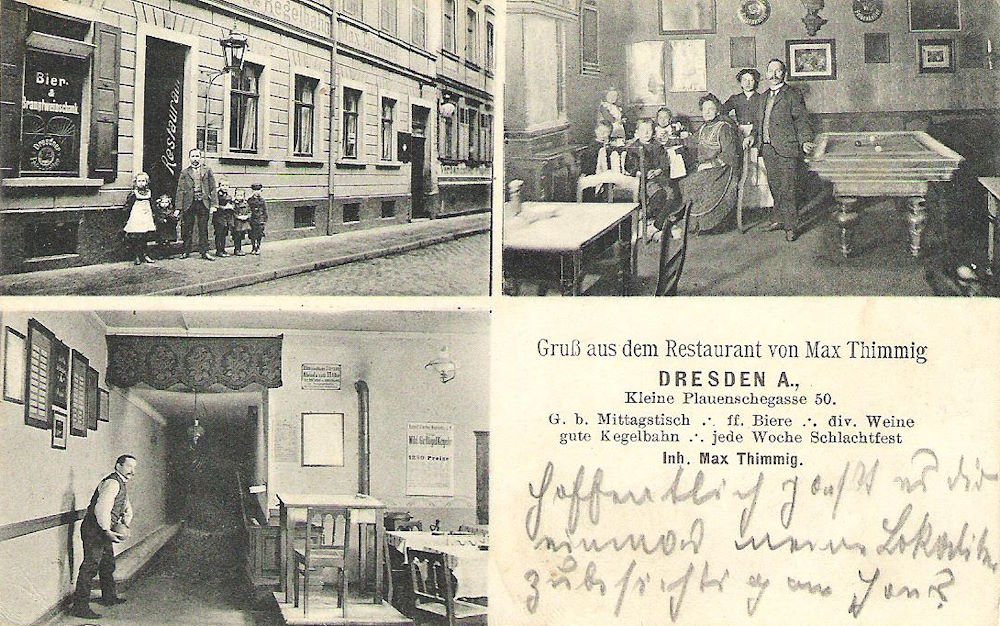 Kegelbahn
Bier-
&
Branntweinschank
Dresdner
Restaurant
1250 Preise
Gruß aus dem Restaurant von Max Thimmig
DRESDEN A.,
Kleine Plauenschegasse 50.
G. b. Mittagstisch ∴ ff. Biere ∴ div. Weine
gute Kegelbahn ∴ jede Woche Schlachtfest
Inh. Max Thimmig.
Hoffentlich paßt es dir
einmal meine Lokalität
zu besichtigen